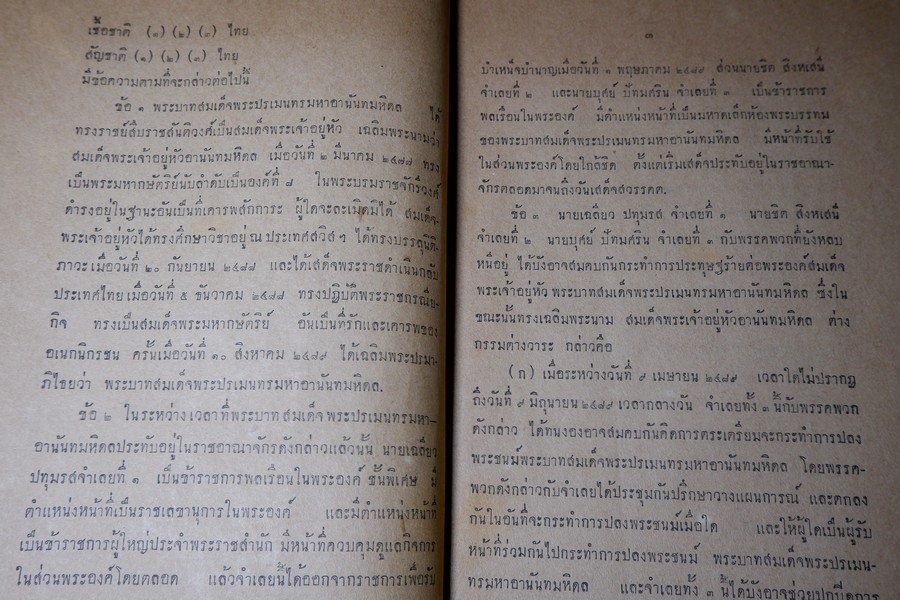 เชื้อชาติ (๑) (๒) (๓) ไทย
สัญชาติ (๑) (๒) (๓) ไทย
มีข้อความตามที่จะกล่าวต่อไปนี้
ข้อ ๑ พระบาทสมเด็จพระปรเมนทรมหาอานันทมหิดล ได้
ทรงราชย์สืบราชสันตติวงศ์เป็นสมเด็จพระเจ้าอยู่หัว เฉลิมพระนามว่า
สมเด็จพระเจ้าอยู่หัวอานันทมหิดล เมื่อวันที่ ๒ มีนาคม ๒๔๗๗ ทรง
เป็นพระมหากษัตริย์นับลำดับเป็นองค์ที่ ๘ ในพระบรมราชจักรีวงศ์
ดำรงอยู่ในฐานะอันเป็นที่เคารพสักการะ ผู้ใดจะละเมิดมิได้ สมเด็จ-
พระเจ้าอยู่หัวได้ทรงศึกษาวิชาอยู่ ณ ประเทศสวิส ฯ ได้ทรงบรรลุนิติ-
ภาวะ เมื่อวันที่ ๒๐ กันยายน ๒๔๘๘ และได้เสด็จพระราชดำเนินกลับ
ประเทศไทย เมื่อวันที่ ๕ ธันวาคม ๒๔๘๘ ทรงปฏิบัติพระราชกรณีย-
กิจ ทรงเป็นสมเด็จพระมหากษัตริย์ อันเป็นที่รักและเคารพของ
อเนกนิกรชน ครั้นเมื่อวันที่ ๑๐ สิงหาคม ๒๔๘๙ ได้เฉลิมพระปรมา-
ภิไธยว่า พระบาทสมเด็จพระปรเมนทรมหาอานันทมหิดล.
ข้อ ๒ ในระหว่างเวลาที่พระบาทสมเด็จพระปรเมนทรมหา-
อานันทมหิดลประทับอยู่ในราชอาณาจักรดังกล่าวแล้วนั้น นายเฉลียว
ปทุมรสจำเลยที่ ๑ เป็นข้าราชการพลเรือนในพระองค์ ชั้นพิเศษ มี
ตำแหน่งหน้าที่เป็นราชเลขานุการในพระองค์ และมีตำแหน่งหน้าที่
เป็นข้าราชการผู้ใหญ่ประจำพระราชสำนัก มีหน้าที่ควบคุมดูแลกิจการ
ในส่วนพระองค์โดยตลอด แล้วจำเลยนี้ได้ออกจากราชการเพื่อรับ
๓
บำเหน็จบำนาญเมื่อวันที่ ๑ พฤษภาคม ๒๔๘๙ ส่วนนายชิต สิงหเสนี
จำเลยที่ ๒ และนายบุศย์ ปัทมศริน จำเลยที่ ๓ เป็นข้าราชการ
พลเรือนในพระองค์ มีตำแหน่งหน้าที่เป็นมหาดเล็กห้องพระบรรทม
ของพระบาทสมเด็จพระปรเมนทรมหาอานันทมหิดล มีหน้าที่รับใช้
ในส่วนพระองค์โดยใกล้ชิด ตั้งแต่เริ่มเสด็จประทับอยู่ในราชอาณา-
จักรตลอดมาจนถึงวันเสด็จสวรรคต.
ข้อ ๓ นายเฉลียว ปทุมรส จำเลยที่ ๑ นายชิต สิงหเสนี
จำเลยที่ ๒ นายบุศย์ ปัทมศริน จำเลยที่ ๓ กับพรรคพวกที่ยังหลบ
หนีอยู่ ได้บังอาจสมคบกันกระทำการประทุษฐร้ายต่อพระองค์สมเด็จ
พระเจ้าอยู่หัว พระบาทสมเด็จพระปรเมนทรมหาอานันทมหิดล ซึ่งใน
ขณะนั้นทรงเฉลิมพระนาม สมเด็จพระเจ้าอยู่หัวอานันทมหิดล ต่าง
กรรมต่างวาระ กล่าวคือ
(ก) เมื่อระหว่างวันที่ ๙ เมษายน ๒๔๘๙ เวลาใดไม่ปรากฏ
ถึงวันที่ ๙ มิถุนายน ๒๔๘๙ เวลากลางวัน จำเลยทั้ง ๓ นี้กับพรรคพวก
ดังกล่าว ได้ทนงองอาจสมคบกันคิดการตระเตรียมจะกระทำการปลง
พระชนม์พระบาทสมเด็จพระปรเมนทรมหาอานันทมหิดล โดยพรรค-
พวกดังกล่าวกับจำเลยได้ประชุมกันปรึกษาวางแผนการณ์ และตกลง
กันในอันที่จะกระทำการปลงพระชนม์เมื่อใด และให้ผู้ใดเป็นผู้รับ
หน้าที่ร่วมกันไปกระทำการปลงพระชนม์ พระบาทสมเด็จพระปรเมน-
ทรมหาอานันทมหิดล และจำเลยทั้ง ๓ นี้ได้บังอาจช่วยปกปิดการ